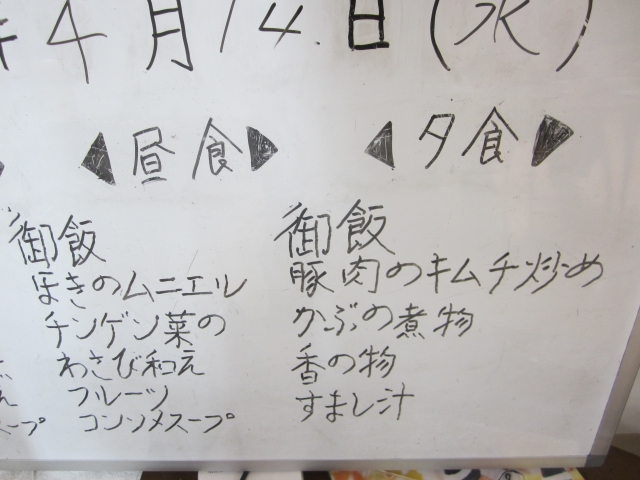 年4月14日(水)
◀昼食▶
御飯
ほきのムニエル
チンゲン菜の
わさび和え
フルーツ
コンソメスープ
◀夕食▶
御飯
豚肉のキムチ炒め
かぶの煮物
香の物
すまし汁
え
スープ